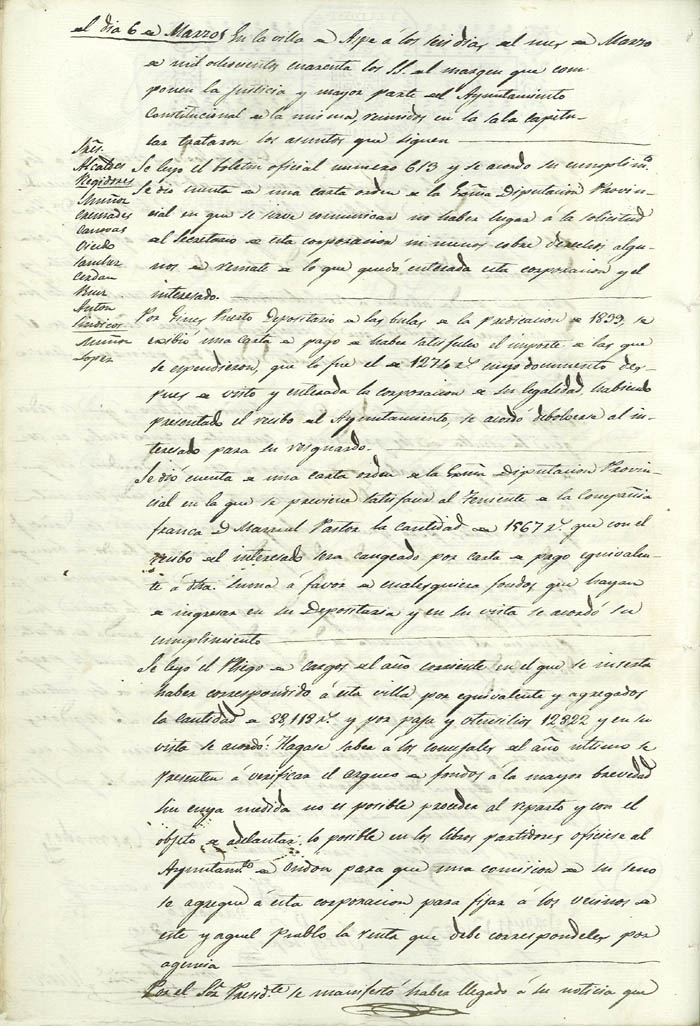 el dia 6 de Marzo} En la villa de Aspe á los seis dias del mes de Marzo
de mil ochocientos cuarenta los SS. del margen que com
ponen la justicia y mayor parte del Ayuntamiento
Constitucional de la misma, reunidos en la sala capitu-
lar trataron los asuntos que siguen
Sres.
Alcaldes
Regidores
Muñoz
Cremades
Canovas
Oicedo
Cerdan
Ruiz
Anton
Sindicos
Muñoz
Lopez
Se leyo el boletin oficial numero 613 y se acordo su cumplimto.
Se dio cuenta de una carta orden de la Exma Diputacion Provin-
cial en que se sirve comunicar no haber lugar á la solicitud
del Secretario de esta corporacion ni menos sobre derechos algu-
nos de remate de lo que quedó enterada esta corporacion y el
interesado.
Por Gines Puerto Depositario de las bulas de la predicacion de 1839, se
exibió una carta de pago de haber satisfecho el importe de las que
se espendieron, que lo fue el de 1274 rs. cuyo documento des-
pues de visto y enterada la corporacion de su legalidad, habiendo
presentado el recibo del Ayuntamiento, se acordó debolverse al in-
teresado para su resguardo.
Se dió cuenta de una carta orden de la Exma Diputacion Provin-
cial en la que se previene satisfacer al Teniente de la Compañia
franca D. Marcial Pastor la cantidad de 1867 rs. que con el
recibo del interesado sera cangeado por carta de pago equivalen-
te á dha. suma á favor de cualesquiera fondos que hayan
de ingresar en su Depositaria y en su vista se acordó su
cumplimiento
Se leyó el Pliego de cargos del año corriente en el que se inserta
haber correspondido á esta villa por equivalente y agregados
la cantidad de 38,118 rs. y por paja y utensilios 12322 y en su
vista se acordó: Hagase saber á los concejales del año ultimo se
presenten á verificar el arqueo de fondos á la mayor brevedad
sin cuya medida no es posible proceder al reparto y con el
objeto de adelantar lo posible en los libros partidores oficiese al
Ayuntamto. de Ondon para que una comision de su seno
se agregue á esta corporacion para fijar á los vecinos de
este y aquel Pueblo la renta que debe corresponderles por
agencia
Por el Sor. Presidte. se manifestó haber llegado á su noticia que